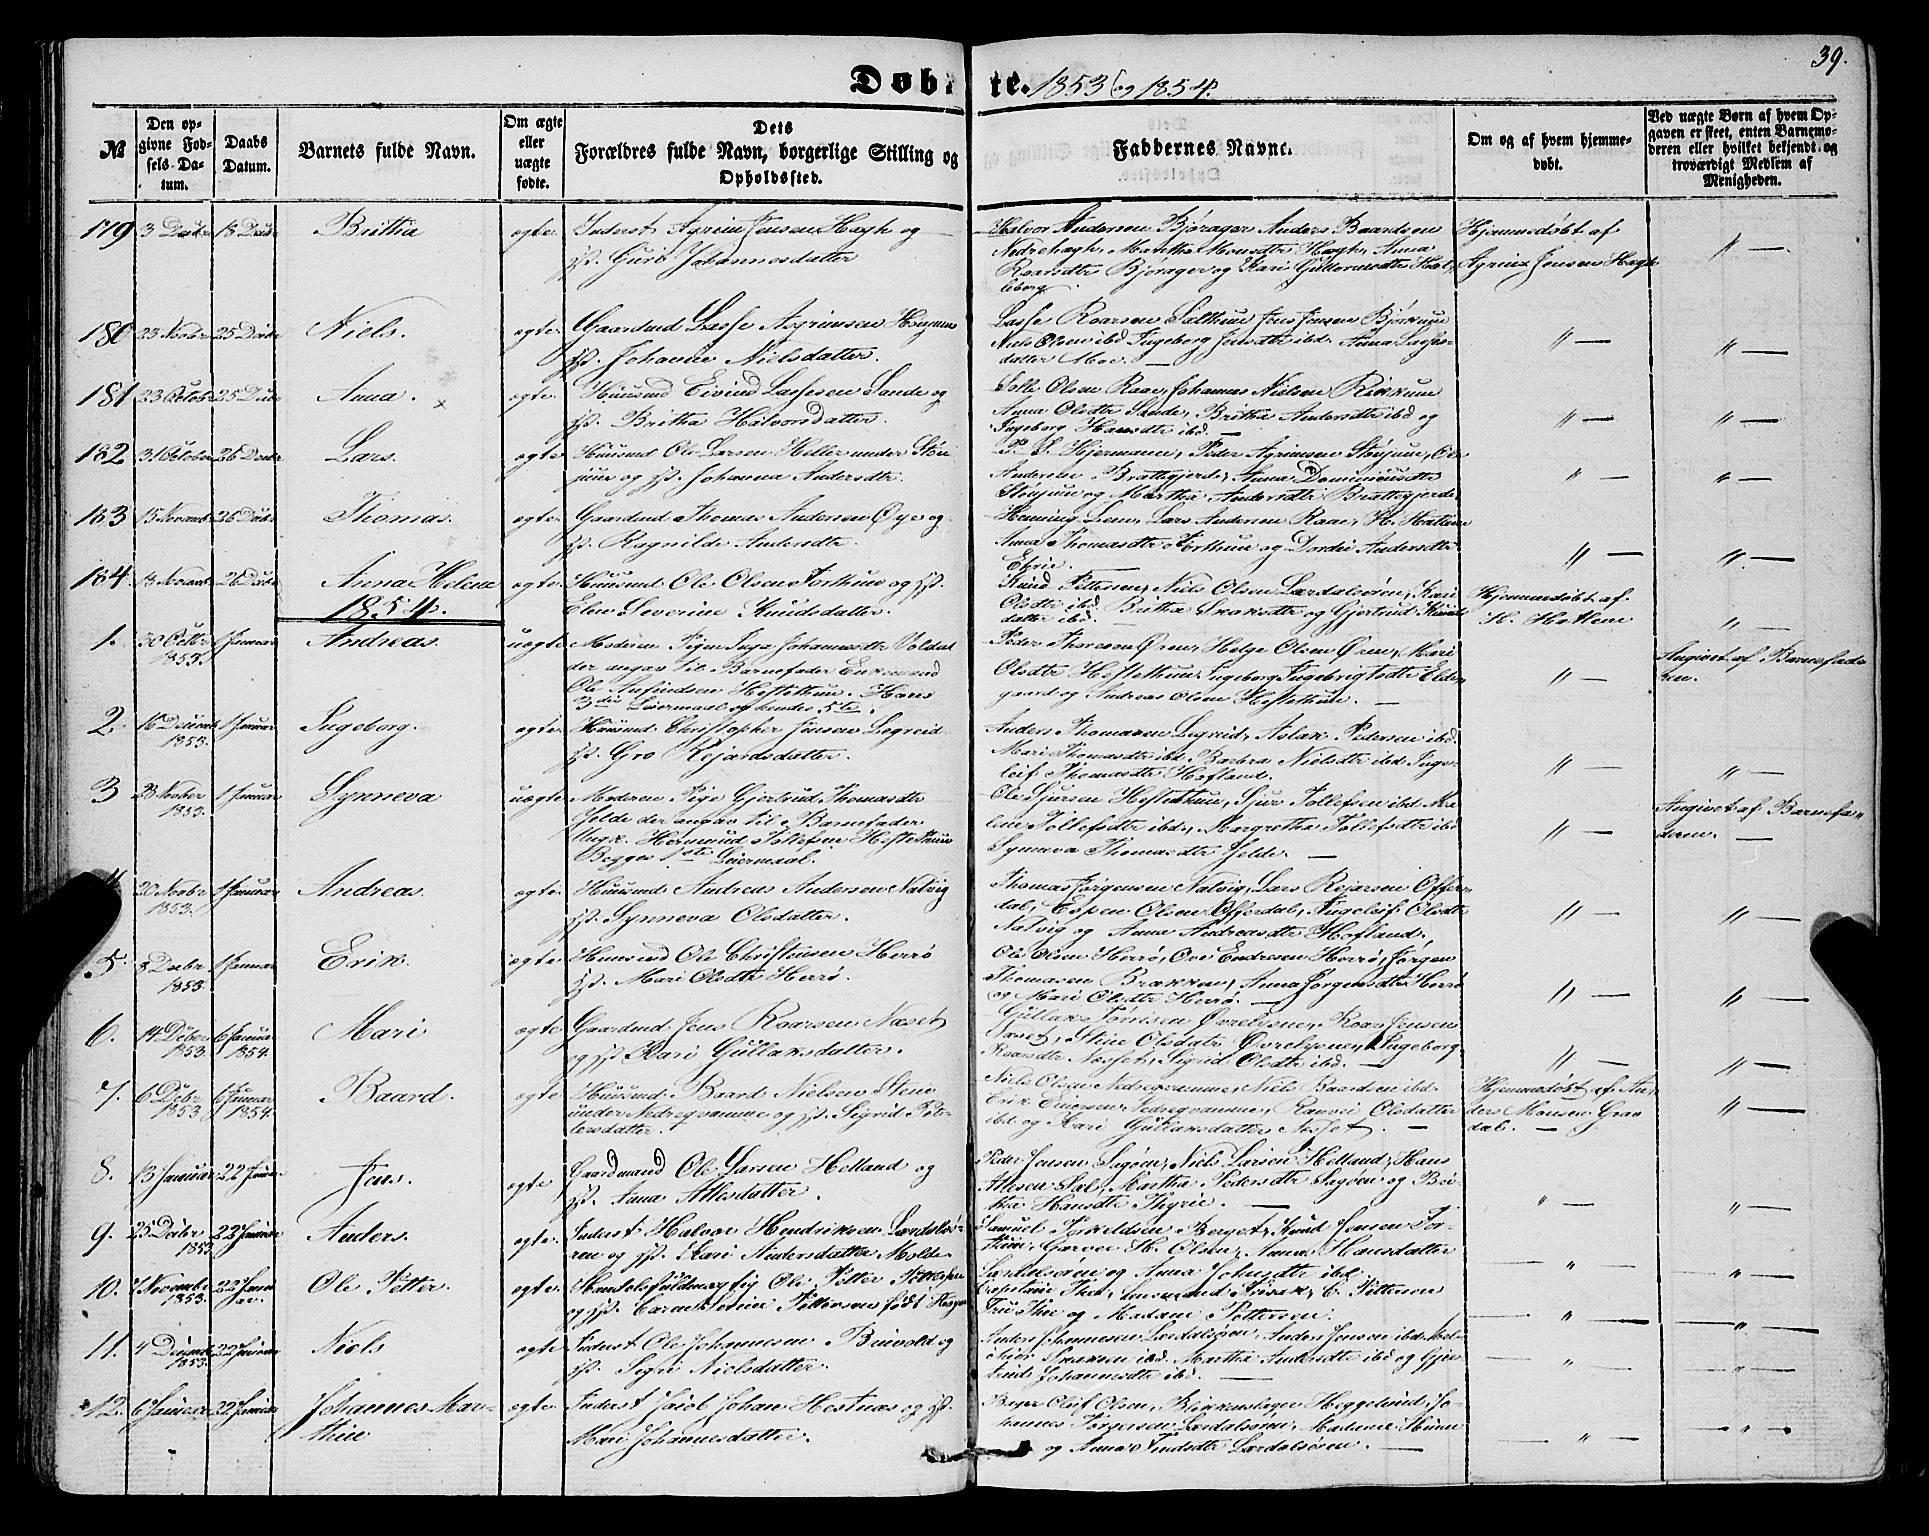 39.
Døbte. 1853 og 1854.
№
Den opgivne Fødsels Datum.
Daabs Datum.
Barnets fulde Navn.
Om ægte eller uægte fødte.
Dets Forældres fulde Navn, borgerlige Stilling og Opholdssted.
Faddernes Navne.
Om og af hvem hjemmedøbt.
Ved uægte Børn af hvem Opgaven er skeet, enten Barnemoderen eller hvilket bekjendt og troværdigt Medlem af Menigheden.
179 3 Decbr 18 Decbr Brithia ægte Inderst Agrim Jensen Hægh og
Hst. Guri Johannesdatter
Halvor Andersen Bjørager Anders Baardsen
Nedrehægh, Martha Monsdtr Hægh, Anna
Roarsdtr Bjørager og Kari Guttormsdtr
Hjemmedøbt af
Agrim Jensen Hægh
180 23 Novbr 25 Decbr Niels. ægte Gaardmd Lasse Asgrimsen
Hst. Johanne Nielsdatter.
Lasse Roarsen Sælthun Jens Jensen Bjørkum
Niels Olsen ibd Ingeborg Jensdtr ibd. Anna Lasses-
datter Moe.
181 23 Octobr 25 Decbr Anna. ægte Huusmd Eivind Lassesen Sande og
Hst. Britha Halvorsdatter.
Olsen Raae, Johannes Nielsen
Anna Olsdtr Sande, Britha Andersdtr ibd og
Ingeborg Hansdtr ibd.
182 31 October 26 Decbr Lars. ægte Huusmd Ole Larsen Heller under Støn-
jum og Hst. Johanna Andersdtr.
Hjermann, Peder Agrimsen Stønjum, Ole
Andersen Brattegjerde, Anna Dominicusdtr
Stønjum og Martha Andersdtr Brattegjerde.
183 15 Novembr 26 Decbr Thomas. ægte Gaardmd Thomas Andersen Øye og
Hst. Ragnilde Andersdtr.
Henning Lem, Lars Andersen Raae, H. Hatlem
Anna Thomasdtr Torthun og Dordei Andersdtr
184 18 Novembr 26 Decbr Anna Helene ægte Huusmd Ole Olsen Torthun og Hst.
Elen Severine Knudsdatter.
Knud Pettersen, Niels Olsen Lærdalsøren, Kari
Olsdtr ibd. Britha og Gjertrud Knuds-
datter ibd.
Hjemmedøbt af
H. Hatlem
1854.
1. 30 Octbr 1853. 1 Januar Andreas. uægte Moderen Pige Inga Johannesdtr Voldum
der angav til Barnefader Enkemand
Ole Anfindsen Hestethun. Hans
3die Leiermaal og hendes 5te.
Peder Thoresen Øren, Helge Olsen Øren, Mari
Olsdtr Hestethun, Ingeborg Ingebrigtsdtr Elde-
gaard og Andreas Olsen Hestethun.
Angivet af Barnefade-
ren.
2. 16 Decemb 1853. 1 Januar Ingeborg. ægte Huusmd Christopher Jensen Legreid
Hst. Gro Rejardsdatter.
Anders Thomasen Legreid, Aslak Pedersen ibd.
Mari Thomasdtr ibd. Barbra Nielsdtr ibd Inge-
leif Thomasdtr Hofland.
3 23 Novber 1853. 1 Januar Synneva uægte Moderen Pige Gjertrud Thomasdtr
Jelde der angav til Barnefader
Ungk. Hermund Tollefsen Hestethun
Begges 1ste Leiermaal.
Ole Sjursen Hestethun, Sjur Tollefsen ibd Ma-
lene Tollefsdtr ibd, Margretha Tollefsdtr ibd
Synneva Thomasdtr Jelde.
Angivet af Barnefa-
deren.
20 Novbr 1853. 1 Januar Andreas. ægte Huusmd Andreas Andersen Natvig
Hst. Synneva Olsdatter.
Thomas Jørgensen Natvig, Lars Rejarsen Offer-
dal, Espen Olsen Offerdal, Ingeleif Olsdtr
Natvig og Anna Andreasdtr Hofland.
5. 3 Decbr 1853. 1 Januar Erik. ægte Huusmd Ole Christensen Herrø
Hst. Mari Olsdtr Herrø.
Ole Olsen Herrø, Ove Endresen Herrø, Jørgen
Thomasen Brækken, Anna Jørgensdtr Herrø
og Mari Olsdtr Herrø.
6. 14 Decbr 1853. 6 Januar 1854. Mari ægte Gaardmd Jens Roarsen Næset
og Hst Kari Gullaksdatter.
Gullak Tørrisen Øvrelysne, Roar Jensen
Næset, Stine Olsdtr Øvrelysne, Ingeborg
Roarsdtr Næset, Sigrid Olsdtr ibd.
7. 6 Decbr 1853. 6 Januar 1854. Baard. ægte Huusmd Baard Nielsen Steen
under Nedreqvamme og Hst. Sigrid Pet-
tersdatter.
Niels Olsen Nedreqvamme, Niels Baardsen ibd.
Erik Nedreqvamme, Ranvei Olsdatter
ibd og Kari Gullaksdatter Næset.
Hjemmedøbt af An-
ders Monsen Gran-
dal.
8. 13 Januar 22 Januar Jens. ægte Gaardmand Ole Larsen Helland og
Hst. Anna Attlesdatter.
Peder Jensen Sagøen, Niels Larsen Helland, Hans
Attlesen Sæl, Martha Pedersdtr Sagøen og Bri-
tha Hansdtr Thyrie.
9. 25 Decbr 1853 22 Januar Anders. ægte. Inderst Halvor Hendriksen Lærdalsø-
ren og Hst. Kari Andersdatter Molde.
Samuel Torkeldsen Berget, Knud Jensen Tor-
thun, Garver H. Olsen, Anna Hansdatter
Lærdalsøren og Anna Johansdtr ibd.
10. 7 Novembr 1853. 22 Januar Ole Petter. ægte. Handelsfuldmægtig Ole Petter Pettersen
og Hst. Pettersen født
Capitaine Thue, E. Pettersen
Fru Thue og Madame Pettersen.
11. 4 Decembr 1853. 22 Januar Niels ægte Inderst Ole Johannesen og
Hst. Sigri Nielsdatter.
Anders Johannesen Lærdalsøren, Anders Jensen ibd. Mel-
chior ibd. Martha Andersdtr ibd og Gjer-
trud Johannesdtr ibd.
12. 6 Januar 22 Januar Johannes Mar-
thin
ægte Inderst Johan Hestnæs og Hst.
Mari Johannesdatter.
Olsen, Blikkenslager Heggelund, Jo-
hannes Jørgensen Lærdalsøren, Madame
og Anna Lærdalsøren.